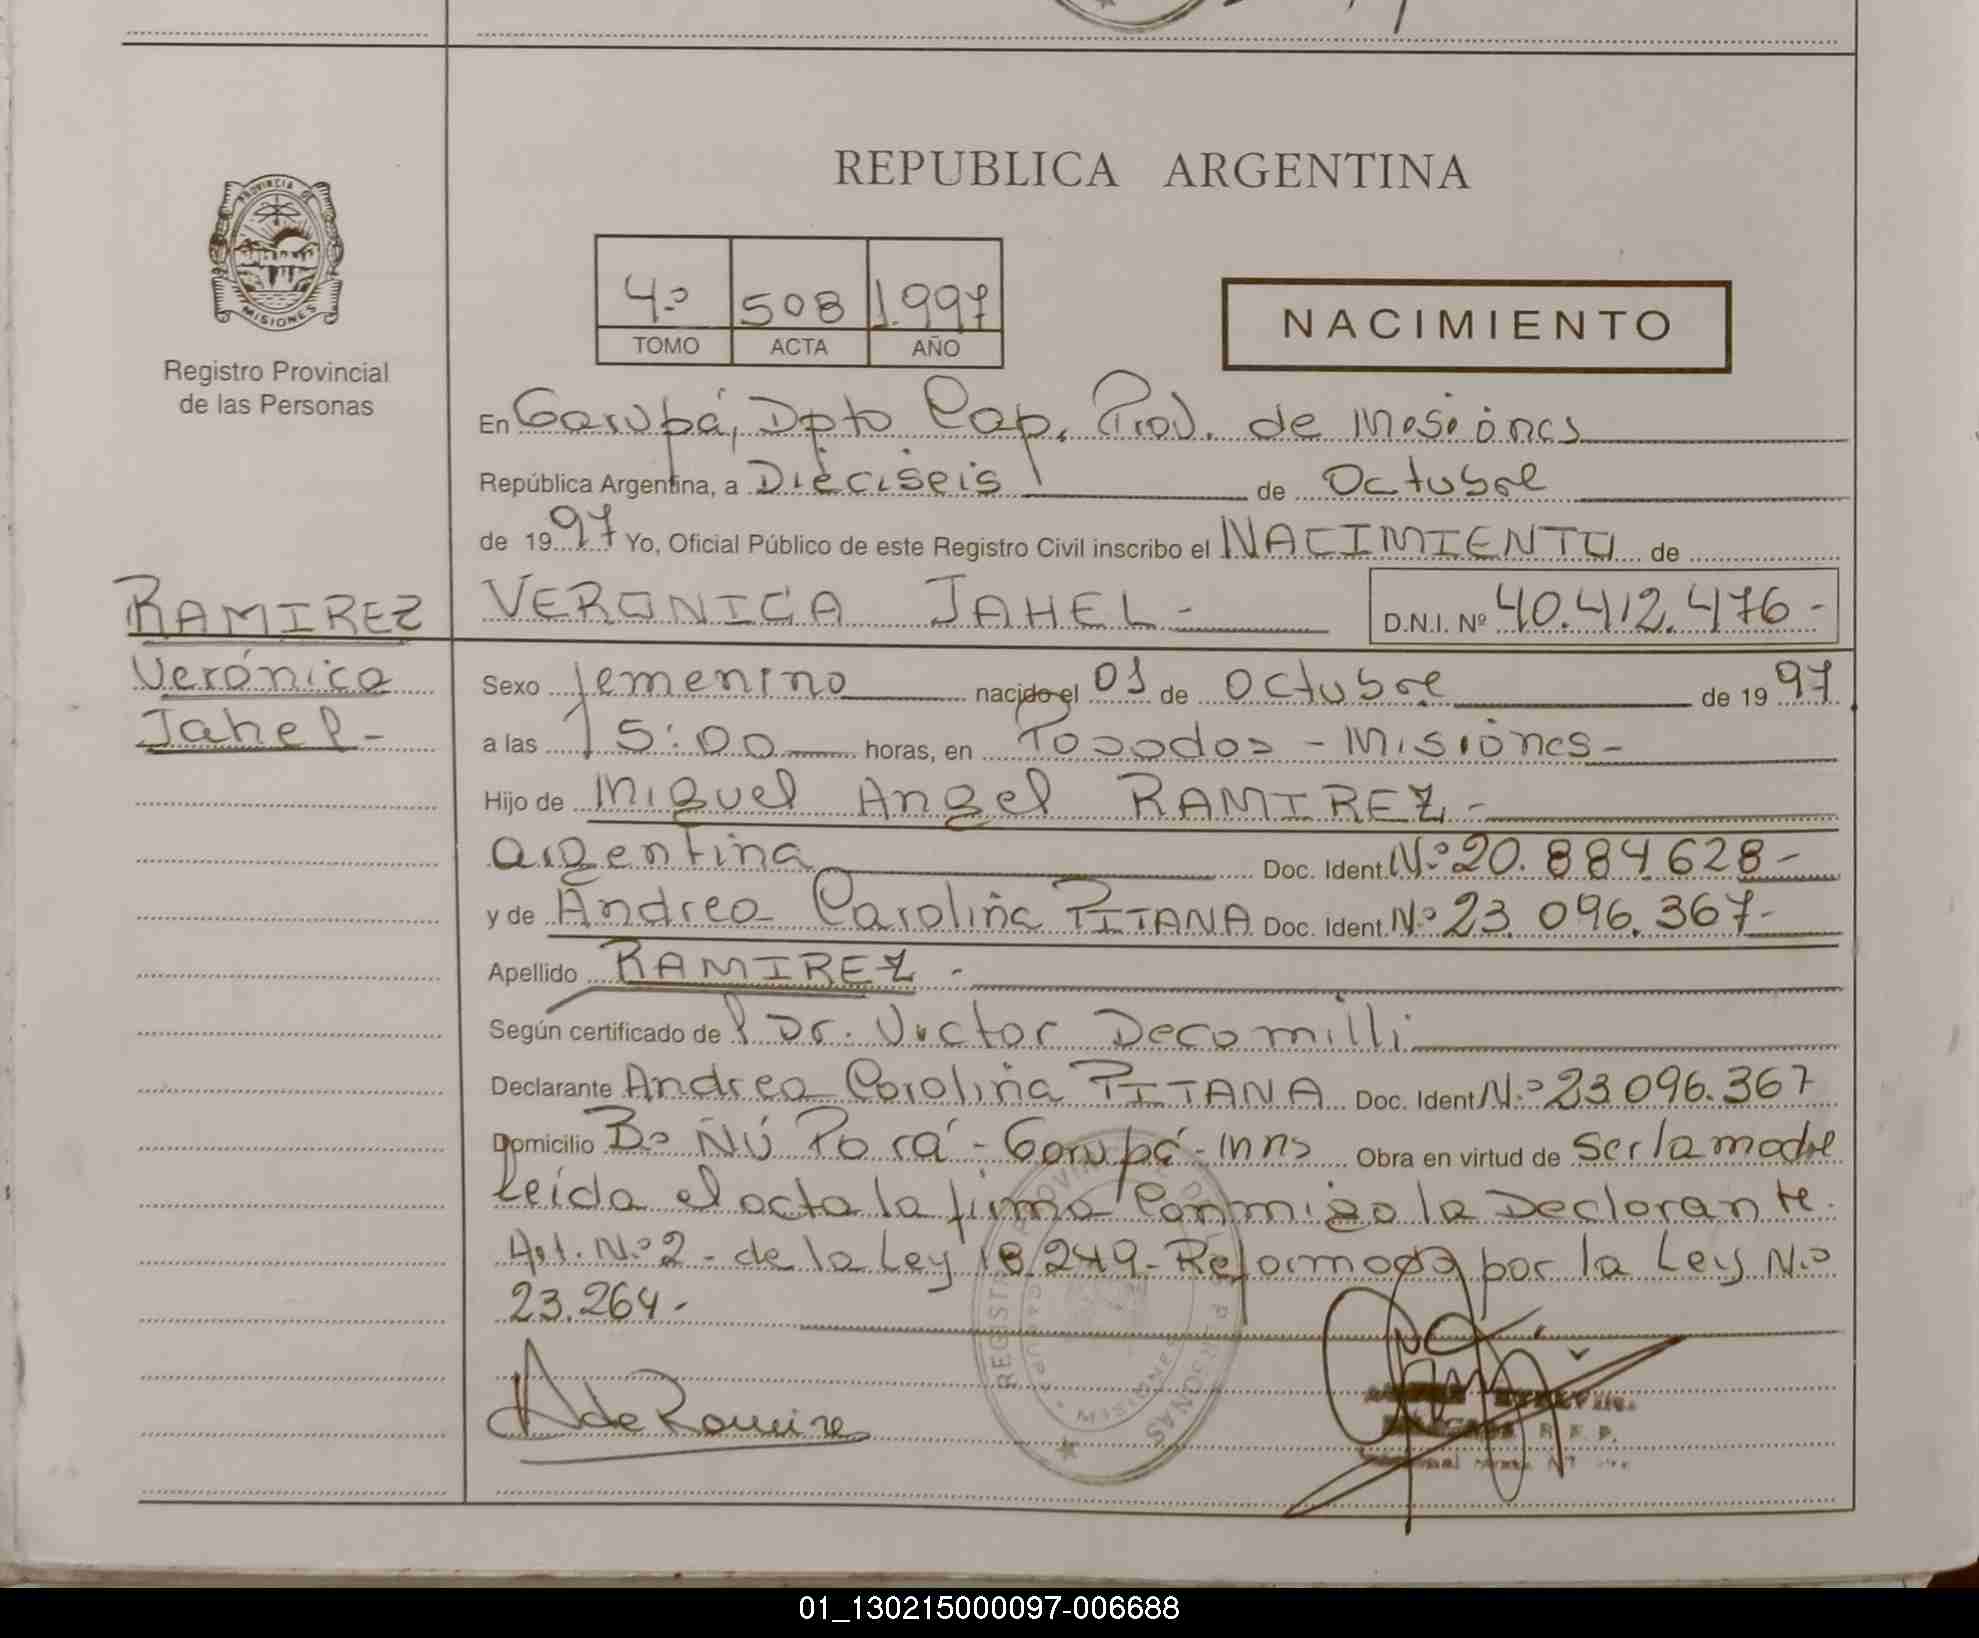 REPUBLICA ARGENTINA
PROVINCIA DE
MISIONES
Registro Provincial
de las Personas
4º 508 1.997
TOMO ACTA AÑO
NACIMIENTO
En Garupá, Dpto Cap. Prov. de Misiones
República Argentina, a Dieciseis de Octubre
de 1997 Yo, Oficial Público de este Registro Civil inscribo el NACIMIENTO de
RAMIREZ
Verónica
Jahel-
VERONICA JAHEL- D.N.I. Nº 40.412.476-
Sexo femenino nacido el 01 de Octubre de 1997
a las 15:00 horas, en Posadas - Misiones-
Hijo de Miguel Angel RAMIREZ.-
argentina Doc. Ident. Nº 20.884628-
y de Andrea Carolina PITANA Doc. Ident. Nº 23.096.367-
Apellido RAMIREZ -
Según certificado del Dr. Victor Decomilli
Declarante Andrea Carolina PITANA Doc. Ident Nº 23.096.367
Domicilio Bº ÑÚ Porá - Garupá - Mns Obra en virtud de ser la madre
leída el acta la firma conmigo la Declarante.
Art. Nº 2 - de la Ley 18.249- Reformada por la Ley Nº
23.264-
A de Ramirez
REGISTRO PROVINCIAL DE LAS PERSONAS
GARUPA
MISIONES
R. P. P.
01_130215000097-006688